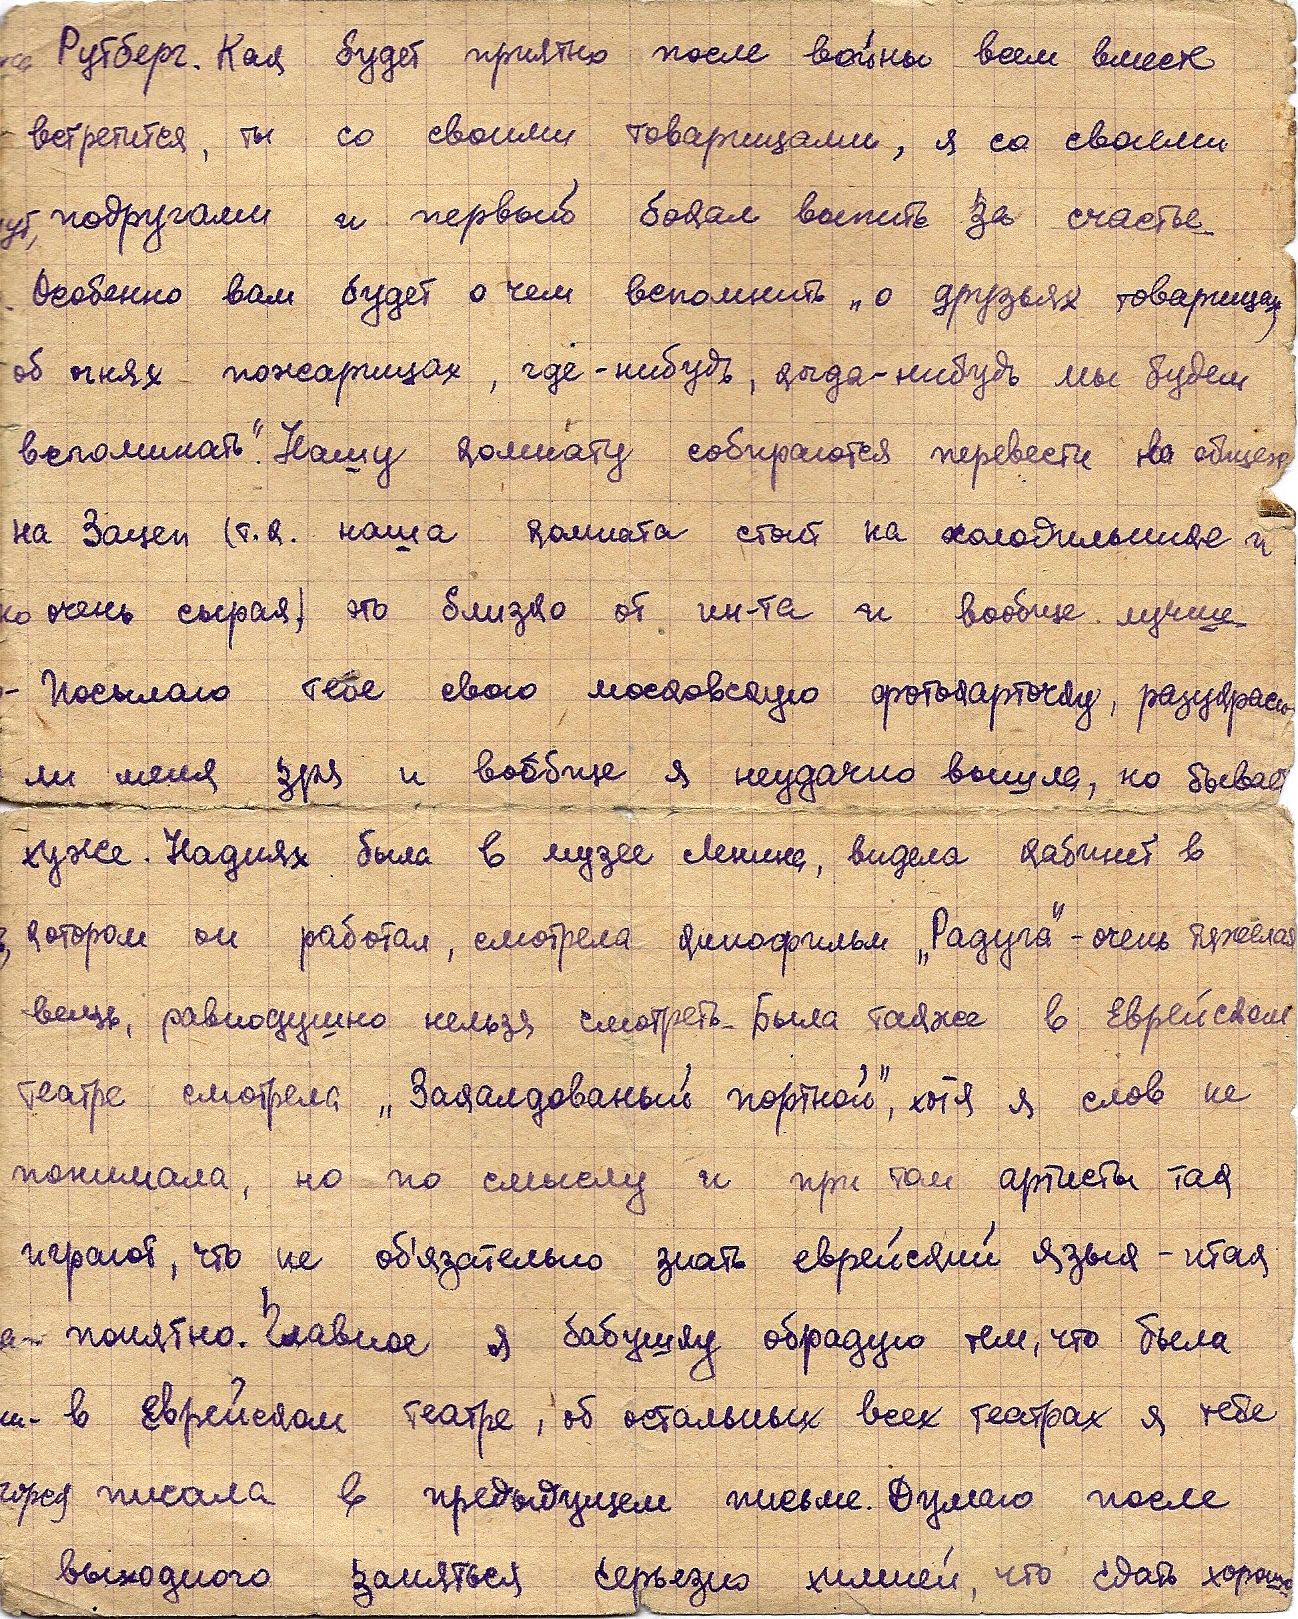 Рутберг. Как будет приятно после войны всем вместе
встретится, ты со своими товарищами, я со своими
подругами и первый бокал выпить за счастье.
Особенно вам будет о чем вспомнить „о друзьях товарищах,
об огнях пожарищах, где-нибудь, когда-нибудь мы будем
вспоминать". Нашу комнату собираются перевести на общеж
на Зацеп (т.к. наша комната стоит на холодильнике и
очень сырая) это близко от ин-та и вообще лучше.
Посылаю тебе свою московскую фотокарточку, разукраси-
ли меня зря и вообще я неудачно вышла, но бывает
хуже. Надиях была в музее Ленина, видела кабинет в
котором он работал, смотрела кинофильм „Радуга" - очень тяжелая
вещь, равнодушно нельзя смотреть. Была также в Еврейском
театре смотрела „Закалдованый портной", хотя я слов не
понимала, но по смыслу и при том артисты так
играют, что не об'язательно знать еврейский язык - итак
понятно. Главное я бабушку обрадую тем, что была
в Еврейском театре, об остальных всех театрах я тебе
писала в предыдущем письме. Думаю после
выходного заняться серьезно химией, что сдать хорошо